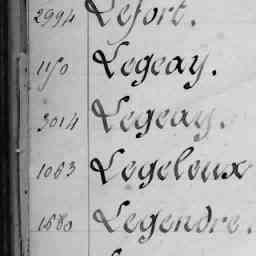 2994 Lefort.
1150 Legeay.
3014 Legeay.
1063 Legeleux
1580 Legendre.